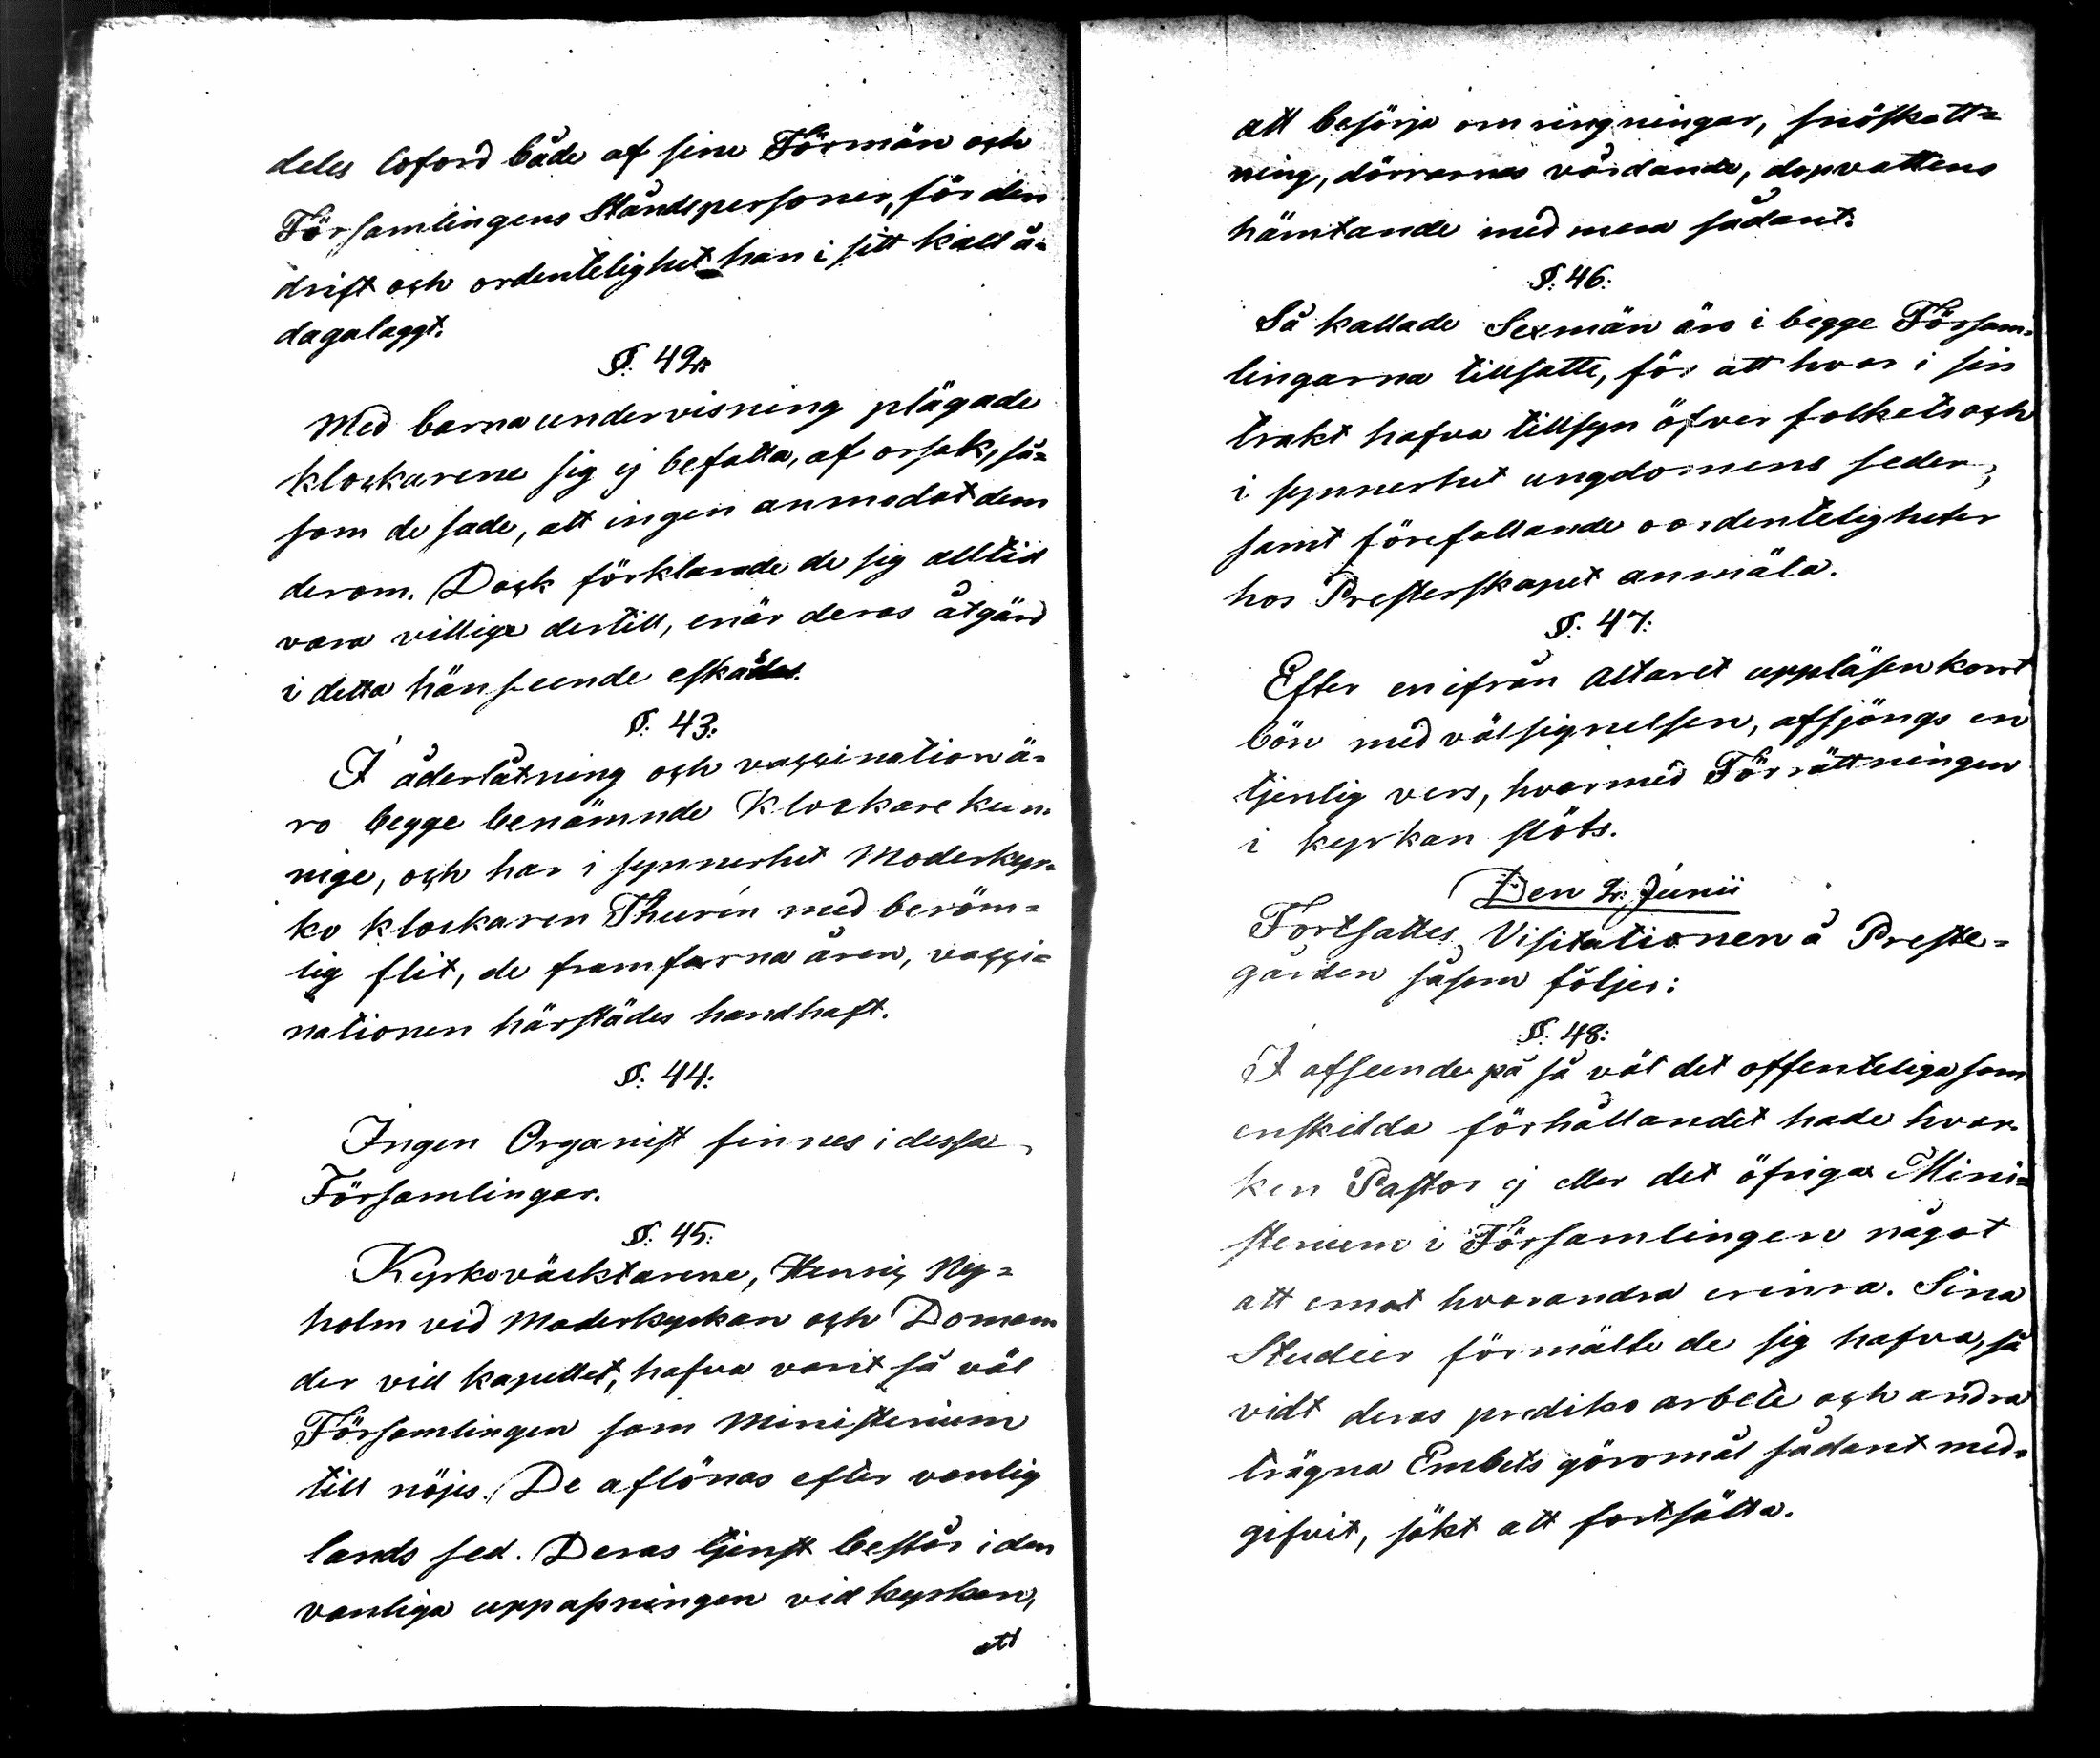 deles loford både af sine Förmän och
Församlingens Ståndspersoner, för den
drift och ordentelighet han i sitt kall å-
dagalaggt.
§. 42:
Med barnaundervisning plägade
klockarene sig ej befatta, af orsak, så-
som de sade, att ingen anmodat dem
derom. Dock förklarade de sig alltid
vara villige dertill, enär deras åtgärd
i detta hänseende eskades.
§. 43:
I åderlåtning och vaccination ä-
ro begge benämnde Klockare kun-
nige, och har i synnerhet Moderkyr-
ko klockaren Thurén med beröm-
lig flit, de framfarna åren, vacci-
nationen härstädes handhaft.
§. 44:
Ingen Organist finnes i dessa
Församlingar.
§. 45:
Kyrkoväcktarene, Henric Ny-
holm vid Moderkyrkan och Doman-
der vid kapellet, hafva varit så väl
Församlingen som Ministerium
till nöjes. De aflönas efter vanlig
lands sed. Deras tjenst består i den
vanliga uppassningen vid kyrkan,
att
att besörja om ringningar, snöskott-
ning, dörrarnas vårdande, dopvattens
hämtande med mera sådant.
§. 46:
Så kallade Sexmän äro i begge Försam-
lingarna tillsatte, för att hvar i sin
trakt hafva tillsyn öfver folkets och
i synnerhet ungdomens seder,
samt förefallande oordenteligheter
hos Presterskapet anmäla.
§. 47:
Efter en ifrån altaret uppläsen kort
bön med välsignelsen, afsjöngs en
tjenlig vers, hvarmed Förrättningen
i kyrkan slöts.
Den 2. Junii
Fortsattes Visitationen å Preste-
gården såsom följer:
§. 48:
I afseende på så väl det offenteliga som
enskilda förhållandet hade hvar-
ken Pastor ej eller det öfriga Mini-
sterium i Församlingen något
att emot hvarandra erinra. Sina
Studier förmälte de sig hafva, så
vidt deras prediko arbete och andra
trägna Embets göromål sådant med-
gifvit, sökt att fortsätta.